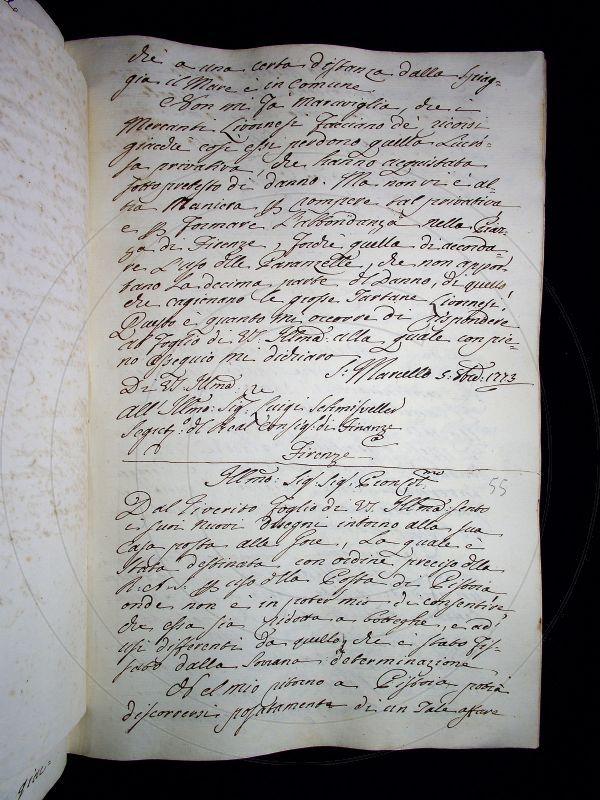 che a una certa distanza dalla Spiag-
gia il Mare è in comune.
Non mi fa maraviglia, che i
Mercanti Livornesi facciano de' ricorsi
giacchè così essi perdono quella Lucro-
sa privativa che hanno acquistata
sotto pretesto di danno. Ma non vi è al-
tra Maniera p rompere tal privativa
e p formare l'abbondanza nella Piaz-
za di Firenze, fuorchè quella di accorda-
re l'uso dlle Paranzelle, che non appor-
tano la decima parte di danno, di quello
che cagionano le grosse Tartane Livornesi.
Questo è quanto mi occorre di rispondere
al foglio di VS. Illma alla quale con pie-
no ossequio mi dichiaro
Di VS. Illma
S. Marcello 5. 1773
All' Illmo: Sig. Luigi Schmisveller
Segret.o dl Real Consig. di Finanze
Firenze
Illmo: Sig. Sig. P. Consolmo
55
Dal riverito foglio di VS. Illma sento
i suoi nuovi disegni intorno alla sua
Casa posta alla , la quale è
stata destinata con ordine preciso dlla
R.A.S. p uso dlla Posta di Pistoia
onde non è in poter mio di consentire
che essa sia ridotta a botteghe, e ad
usi differenti da quello, che è stato fis-
sato dalla Sovrana determinazione
Nel mio ritorno a Pistoia potrà
discorrersi posatamente di un tale affare